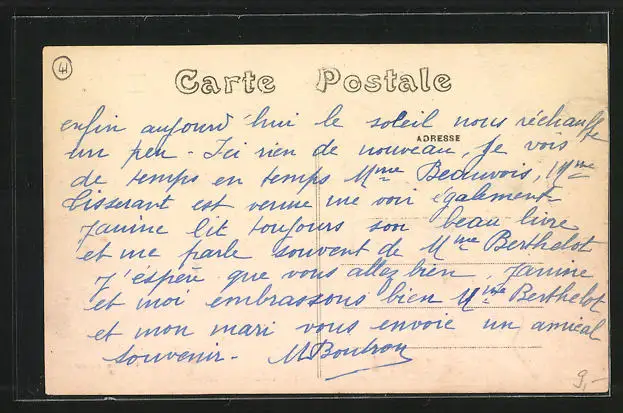 41
Carte Postale
enfin aujourd'hui le soleil nous réchauffe
ADRESSE
un peu - Ici rien de nouveau, je vois
de temps en temps Mme Beauvois, Mme
Tisserant est venue me voir également -
Janine lit toujours son beau livre
et me parle souvent de Mme Berthelot
J'éspère que vous allez bien, Janine
et moi embrassons bien Mme Berthelot
et mon mari vous envoie un amical
souvenir - M Boutron
9,-